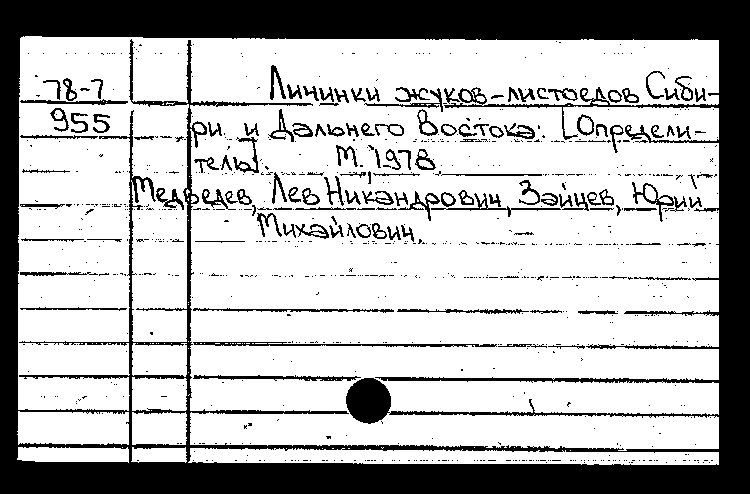 78-7 Личинки жуков-листоедов Сиби-
955 ри и Дальнего Востока: [Определи-
тель]. М., 1978.
Медведев, Лев Никандрович, Зайцев, Юрий
Михайлович.